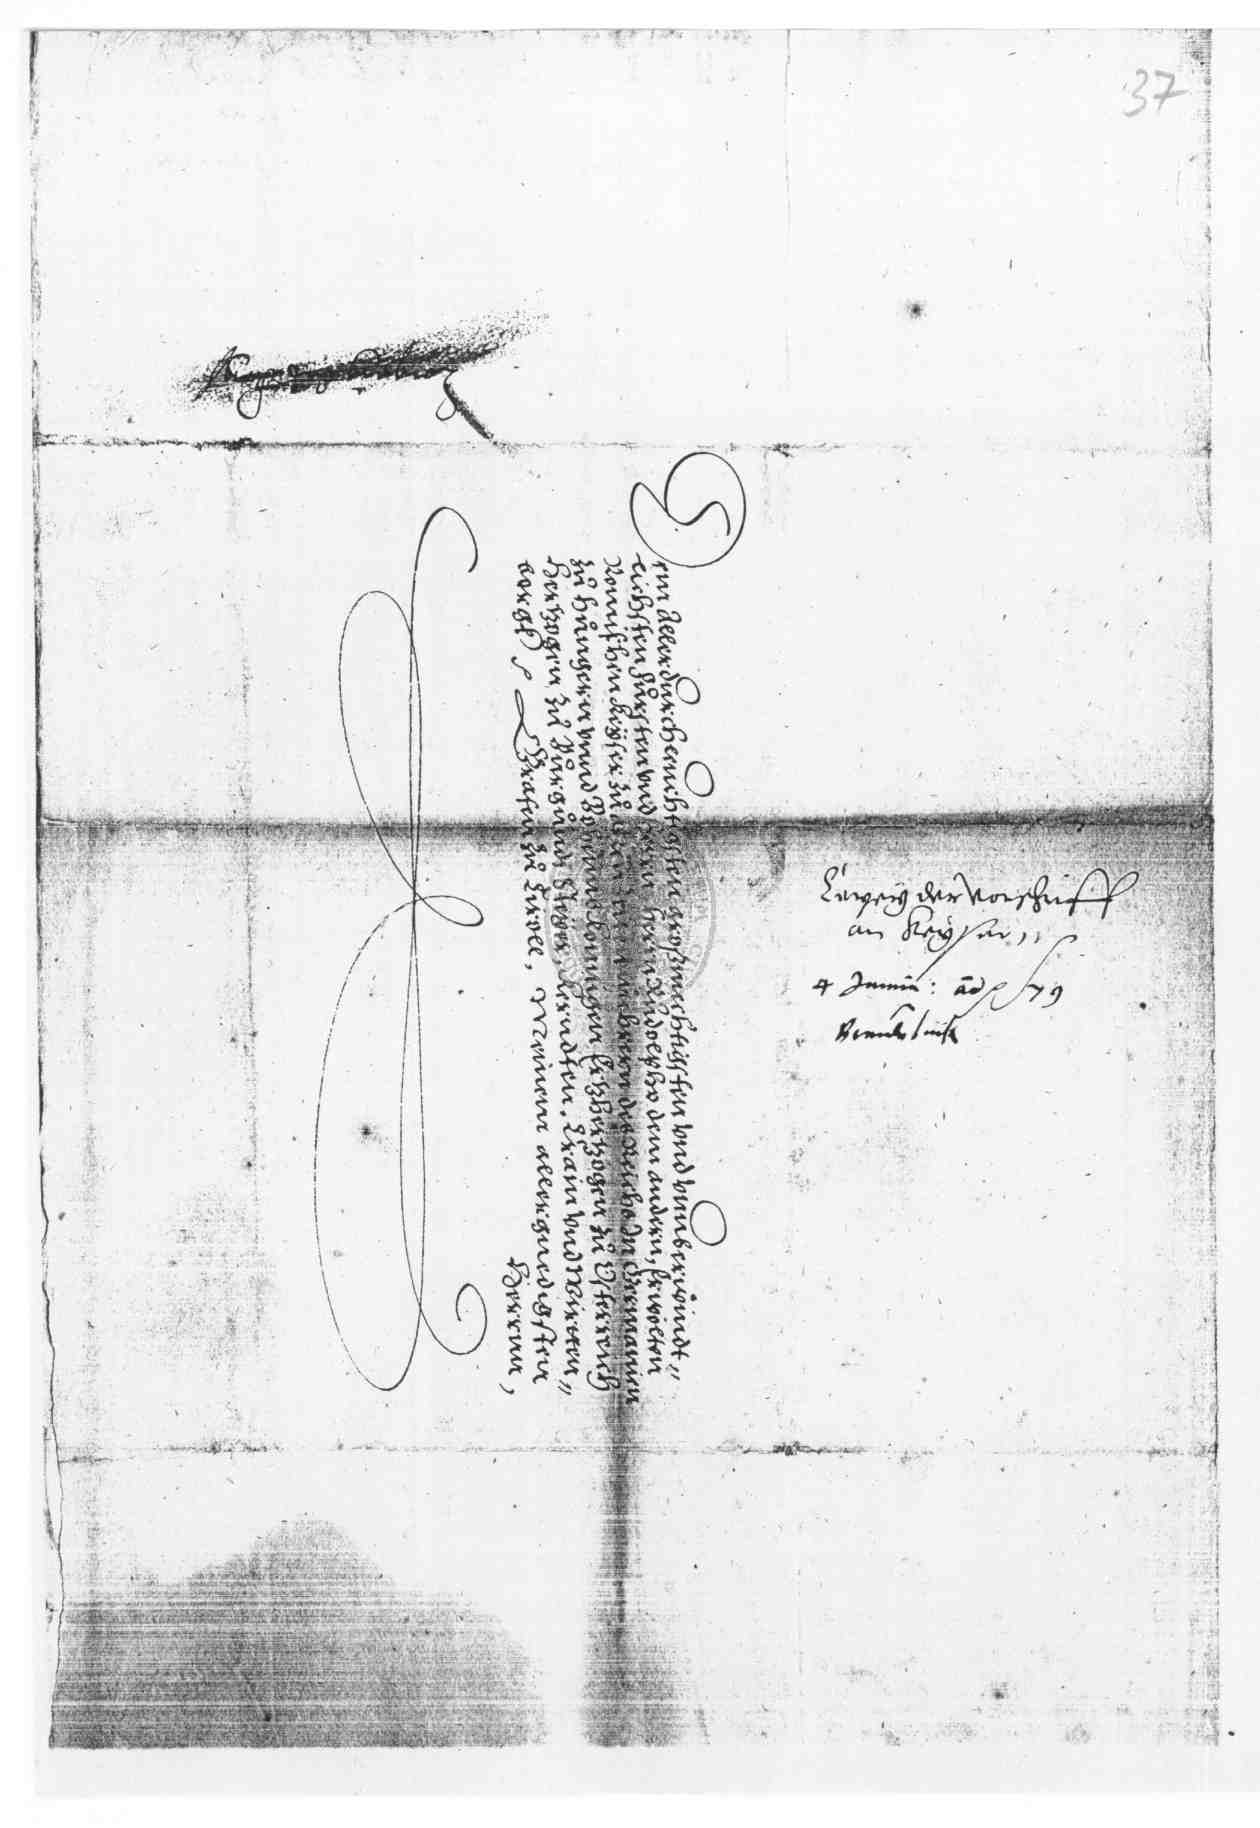 37
Dem Allerdurchleuchtigsten großmechtigsten vnd vnuberwindt„
lichsten Fursten vnd herrn herrn Rudolpho dem andern, Erwölten
Romischen Keyser zu allen Zeiten mehrern des Reichs In Germanien
zu Hungern vnnd Behaim Konnigen Ertzhertzogen zu Osterreich
Hertzogen zu Burgundi Steyer Kerndten. Crain vnd Wirten„
bergk Grafen zu Tiroll, Meinem allergnedigsten
Herrnn,
der Vorschrifft
an Keyser
4 Junii: ad 79